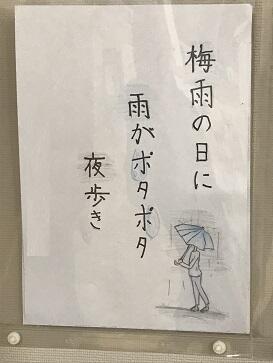 梅雨の日に
雨がポタポタ
夜歩き